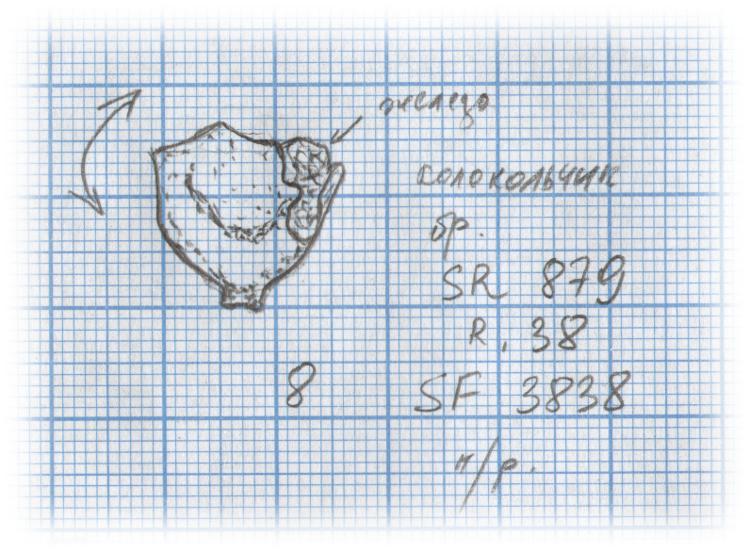 железо
колокольчик
бр.
SR 879
R. 38
8 SF 3838
п/р.